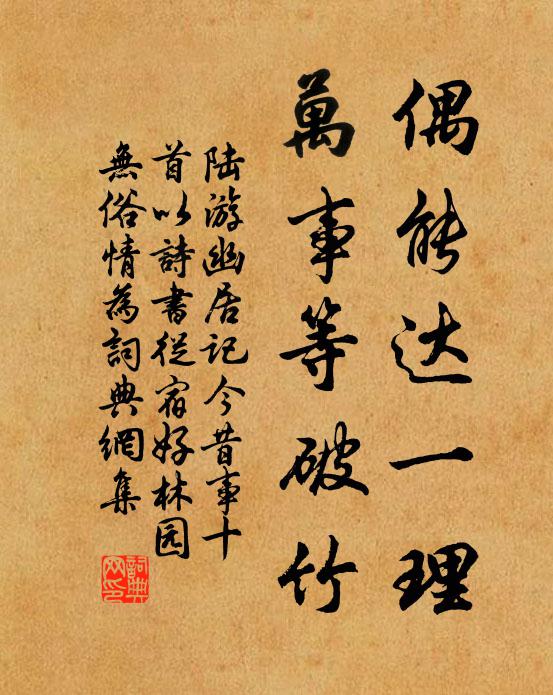 偶能达一理
萬事等破竹
陆游幽居记今昔事十
首以詩書從宿好林园
無俗情為詞典網集
詞典网印